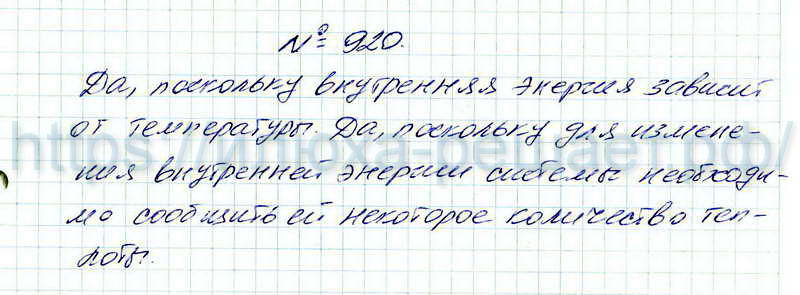 № 920.
Да, поскольку внутренняя энергия зависит
от температуры. Да, поскольку для измене-
ния внутренней энергии системы необходи-
мо сообщить ей некоторое количество теп-
лоты.